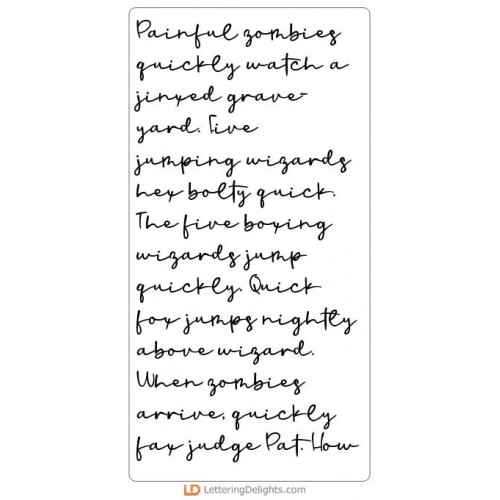 Painful zombies
quickly watch a
jinxed grave-
yard. Five
jumping wizards
hex bolty quick.
The five boxing
wizards jump
quickly. Quick
fox jumps nightly
above wizard.
When zombies
arrive, quickly
fax judge Pat. How
LD LetteringDelights.com